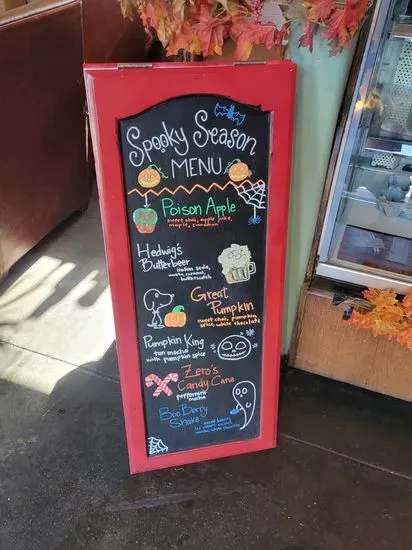 Spooky Season
MENU
Poison Apple
sweet chai, apple juice,
maple, cinnamon
Hedwig's
Butterbeer
italian soda,
vanilla, caramel,
butterscotch
Great
Pumpkin
sweet chai, pumpkin
spice, white chocolate
Pumpkin King
tan mocha
with pumpkin spice
Zero's
Candy Cane
peppermint
mocha
Boo Berry
Shake